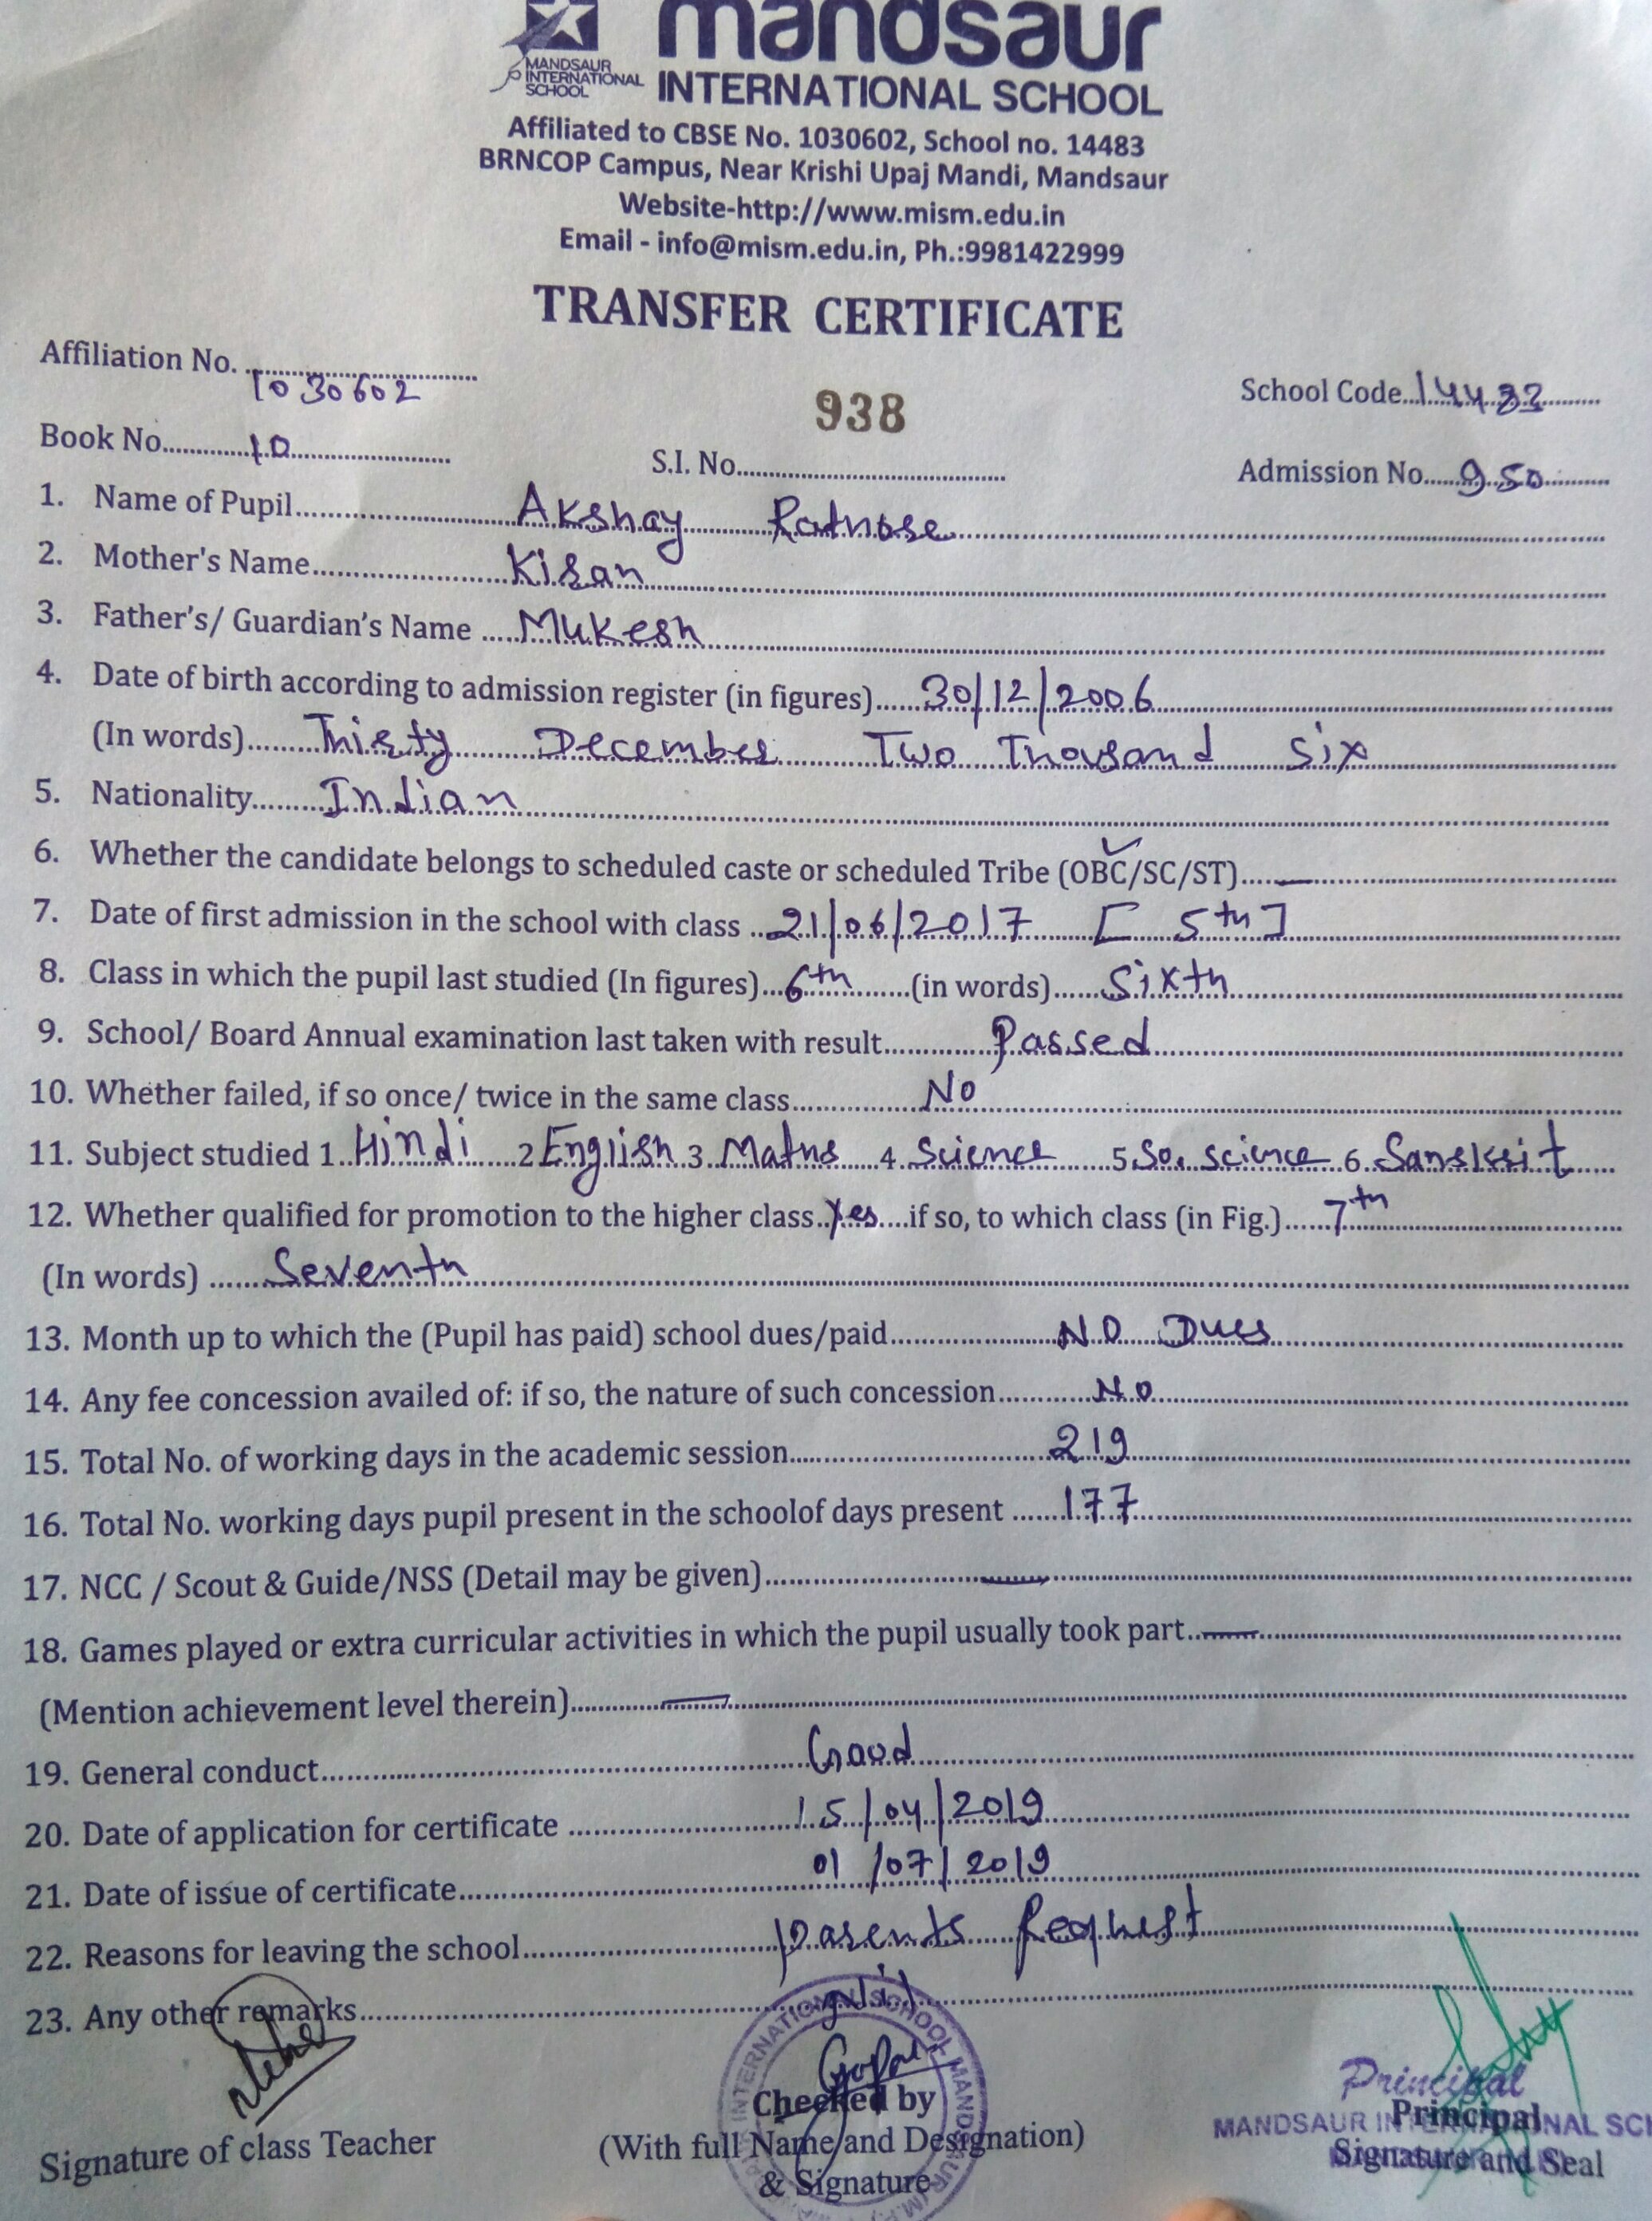 mandsaur
MANDSAUR
INTERNATIONAL
SCHOOL
INTERNATIONAL SCHOOL
Affiliated to CBSE No. 1030602, School no. 14483
BRNCOP Campus, Near Krishi Upaj Mandi, Mandsaur
Website-http://www.mism.edu.in
Email - info@mism.edu.in, Ph.:9981422999
TRANSFER CERTIFICATE
Affiliation No. 1030602
938
School Code
Book No. 10 S.I. No. Admission No. 950
1. Name of Pupil Akshay Ratnore
2. Mother's Name Kiran
3. Father's/ Guardian's Name Mukesh
4. Date of birth according to admission register (in figures) 30/12/2006
(In words) Thirty December Two Thousand Six
5. Nationality Indian
6. Whether the candidate belongs to scheduled caste or scheduled Tribe (OBC/SC/ST) —
7. Date of first admission in the school with class 21/06/2017 [ 5th ]
8. Class in which the pupil last studied (In figures) 6th (in words) Sixth
9. School/ Board Annual examination last taken with result Passed
10. Whether failed, if so once/ twice in the same class No
11. Subject studied 1. Hindi 2 English 3. Maths 4. Science 5. So. science 6. Sanskrit
12. Whether qualified for promotion to the higher class Yes if so, to which class (in Fig.) 7th
(In words) Seventh
13. Month up to which the (Pupil has paid) school dues/paid NO Dues
14. Any fee concession availed of: if so, the nature of such concession No
15. Total No. of working days in the academic session 219
16. Total No. working days pupil present in the schoolof days present 177
17. NCC / Scout & Guide/NSS (Detail may be given) —
18. Games played or extra curricular activities in which the pupil usually took part —
(Mention achievement level therein) —
19. General conduct Good
20. Date of application for certificate 15/04/2019
21. Date of issue of certificate 01/07/2019
22. Reasons for leaving the school parents Request
23. Any other remarks
INTERNATIONAL SCHOOL MANDSAUR (M.P.)
Gopal
Checked by
Principal
Principal
MANDSAUR INTERNATIONAL SC
Signature of class Teacher
(With full Name and Designation)
& Signature
Signature and Seal